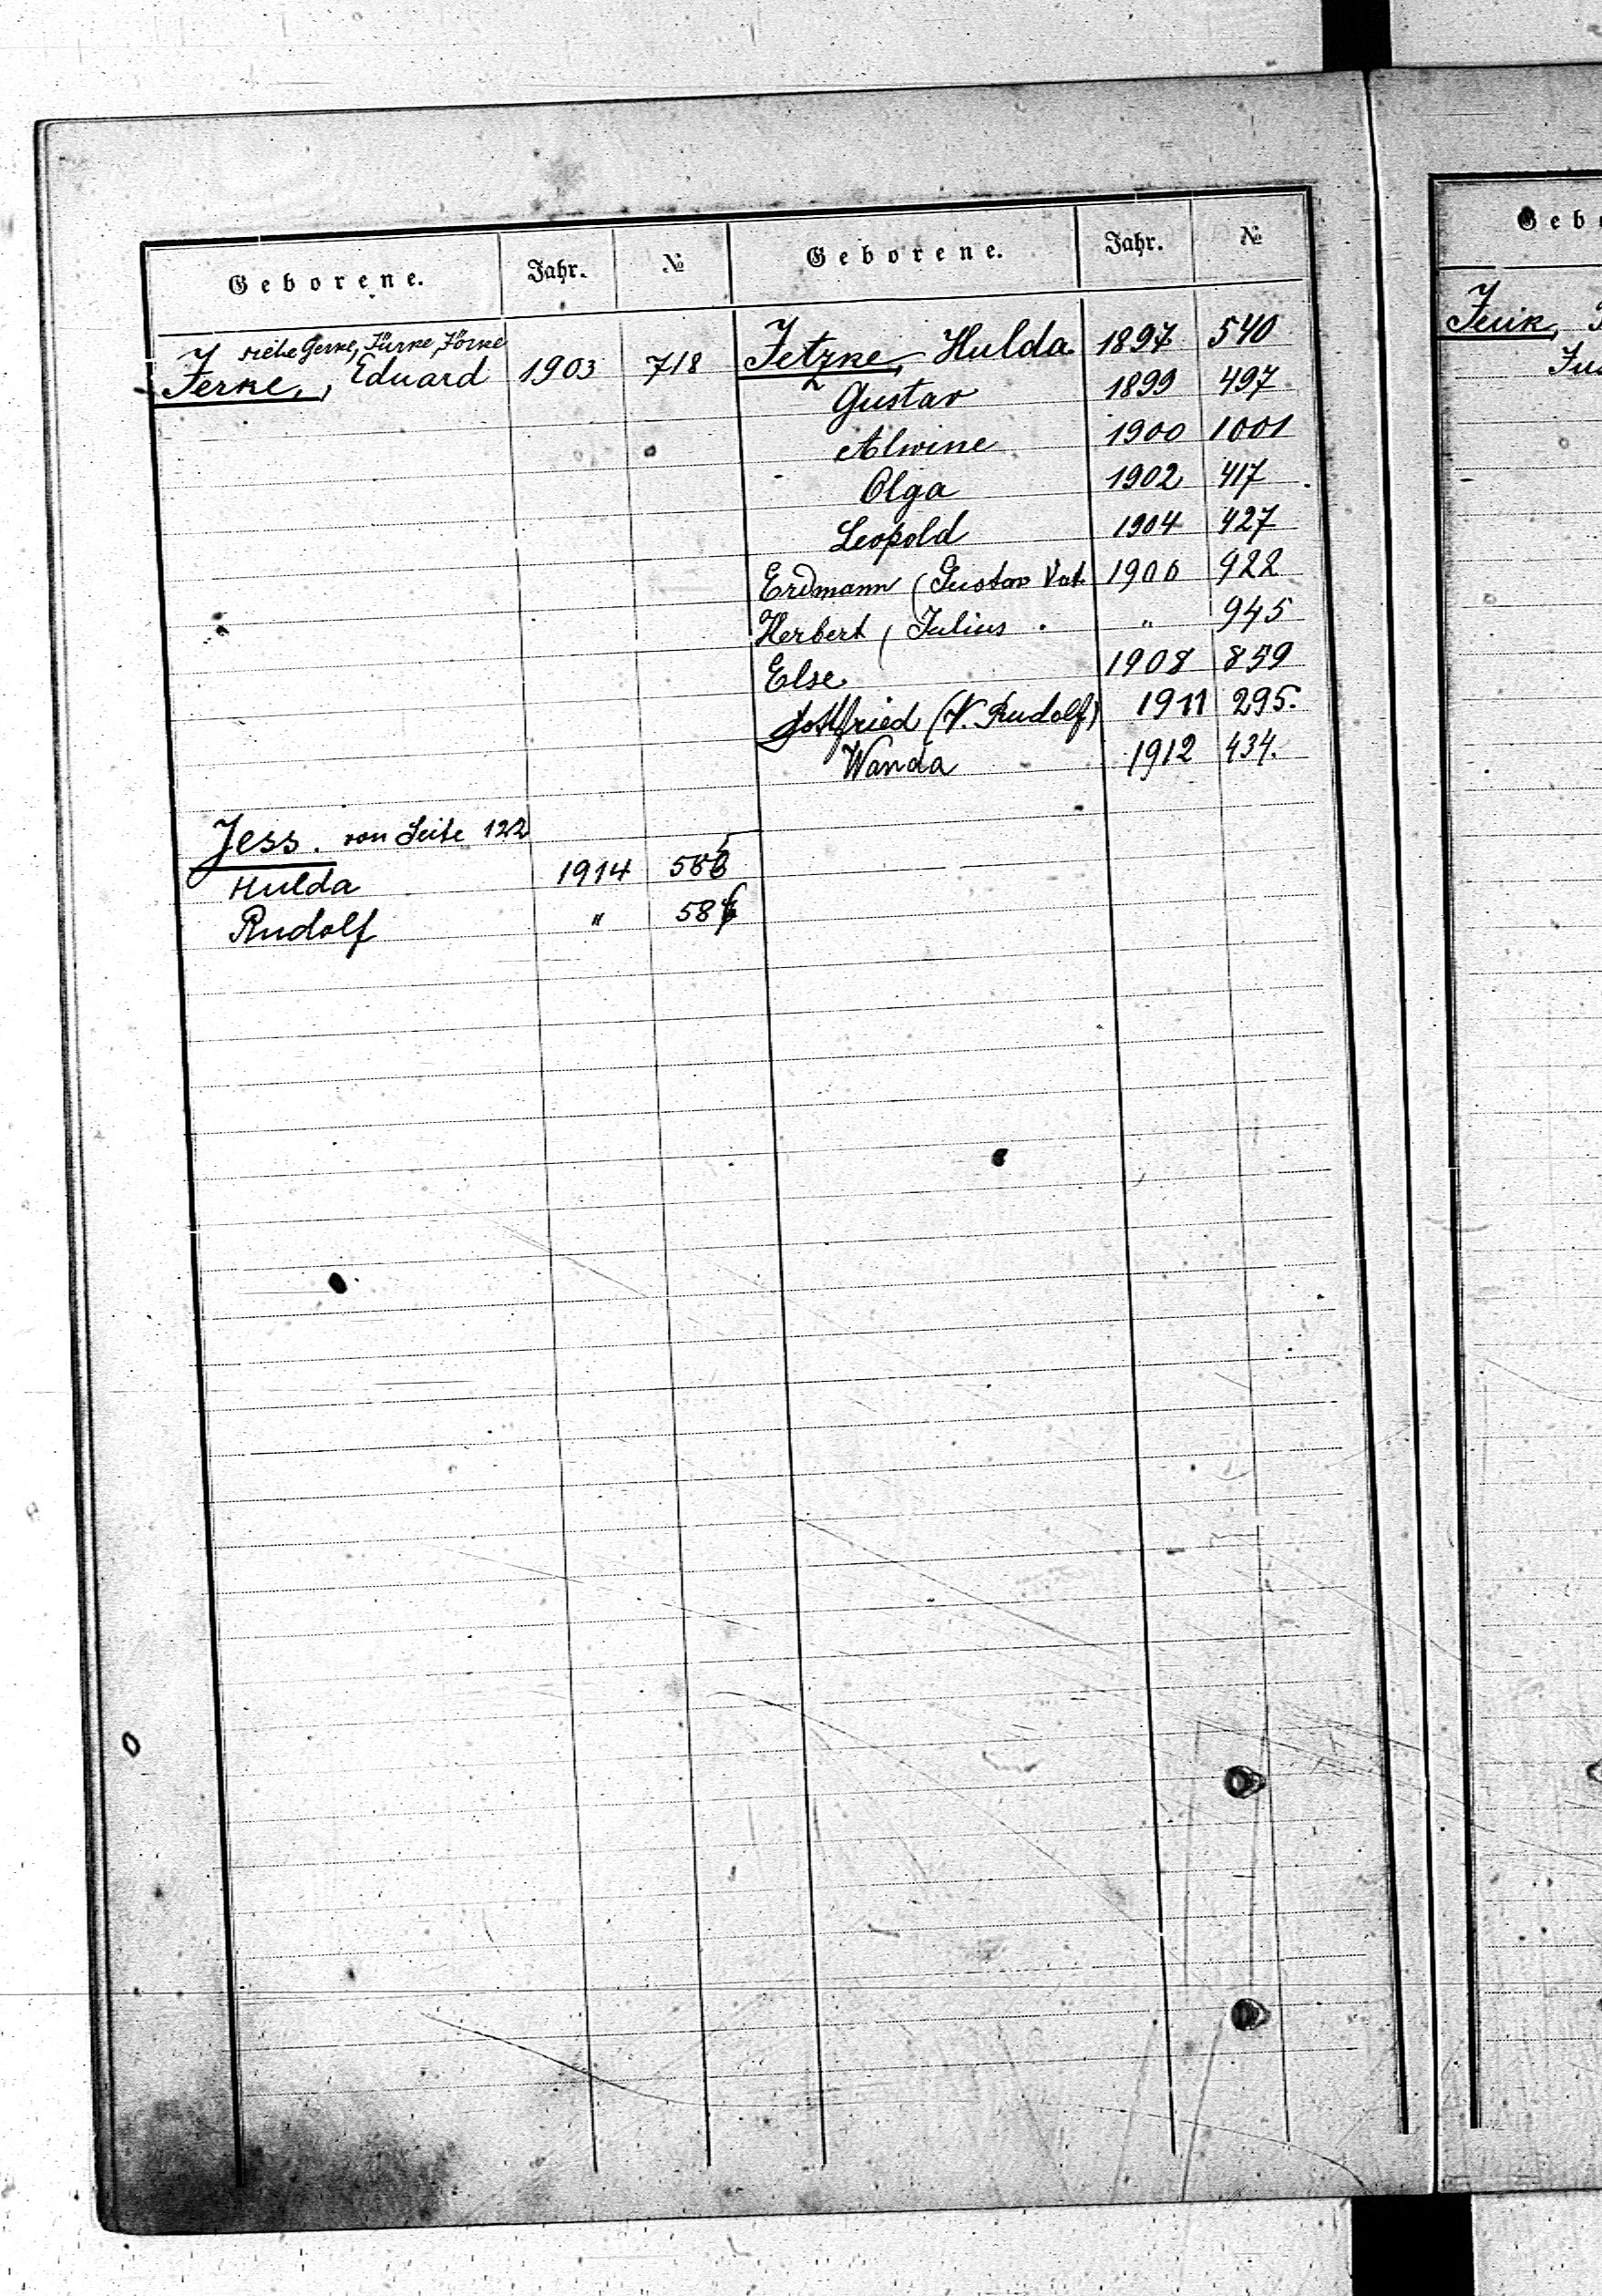 Geborene. Jahr. №
siehe Gerke, Jürke, Jörke
Jerke, Eduard 1903 718
Jess. von Seite 122
Hulda 1914
Rudolf "
Geborene. Jahr. №
Jetzke, Hulda. 1897 540
Gustav 1899 497
Alwine 1900 1001
Olga 1902 417
Leopold 1904 427
Erdmann (Gustav Vat. 1906 922
Herbert, Julius . " 945
Else 1908 859
Gottfried (V. Rudolf) 1911 295.
Wanda 1912 434.
Gebo